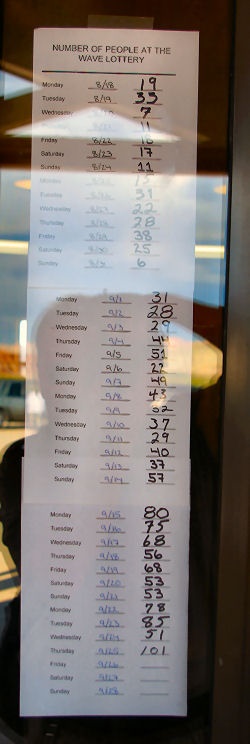 NUMBER OF PEOPLE AT THE
WAVE LOTTERY
Monday 8/18 19
Tuesday 8/19 33
Wednesday 7
11
Friday 8/22 16
Saturday 8/23 17
Sunday 8/24 11
Tuesday 31
Wednesday 22
Thursday 8/28 28
Friday 8/29 38
Saturday 8/30 25
Sunday 8/31 6
Monday 9/1 31
Tuesday 9/2 28
Wednesday 9/3 29
Thursday 9/4 44
Friday 9/5 51
Saturday 9/6 22
Sunday 9/7 49
Monday 9/8 43
Tuesday 9/9 52
Wednesday 9/10 37
Thursday 9/11 29
Friday 9/12 40
Saturday 9/13 37
Sunday 9/14 57
Monday 9/15 80
Tuesday 9/16 75
Wednesday 9/17 68
Thursday 9/18 56
Friday 9/19 68
Saturday 9/20 53
Sunday 9/21 53
Monday 9/22 78
Tuesday 9/23 85
Wednesday 9/24 51
Thursday 9/25 101
Friday 9/26
Saturday 9/27
Sunday 9/28